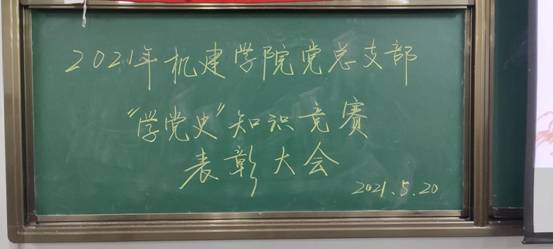 2021年机建学院党总支部
“学党史”知识竞赛
表彰大会
2021.5.20